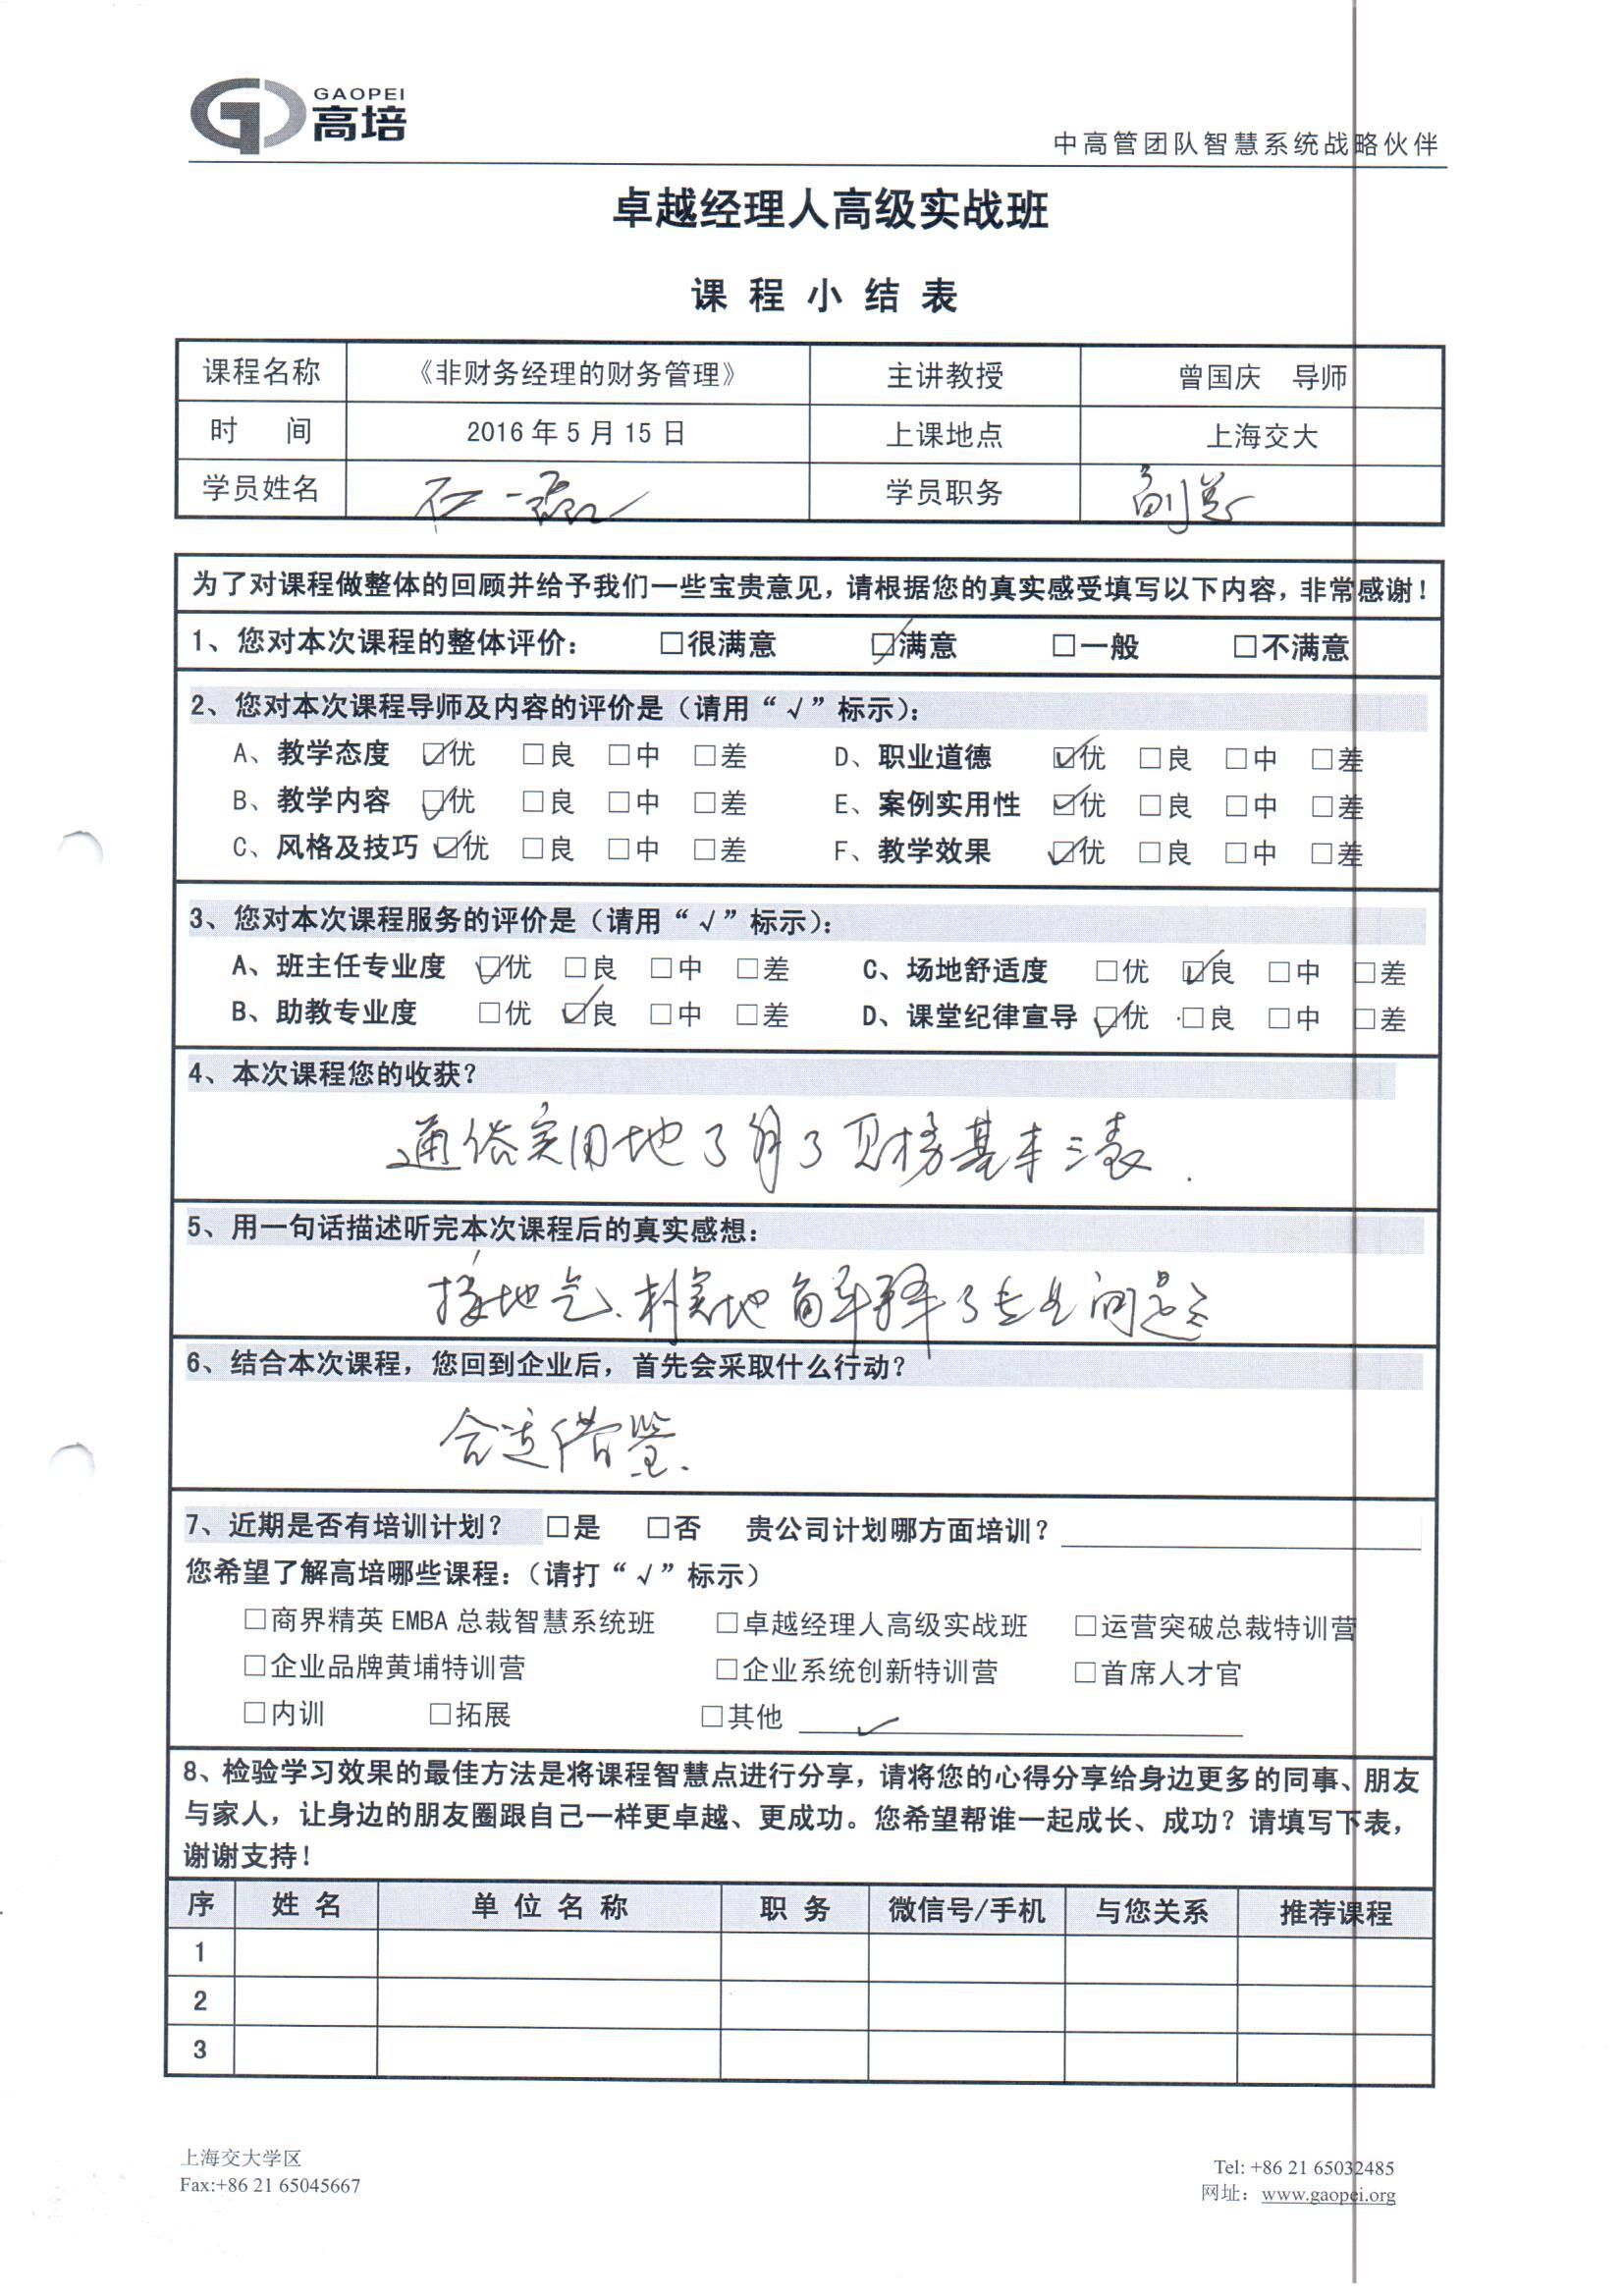 GAOPEI
高培
中高管团队智慧系统战略伙伴
卓越经理人高级实战班
课程小结表
课程名称 《非财务经理的财务管理》 主讲教授 曾国庆 导师
时 间 2016年5月15日 上课地点 上海交大
学员姓名 学员职务 副总
为了对课程做整体的回顾并给予我们一些宝贵意见，请根据您的真实感受填写以下内容，非常感谢！
1、您对本次课程的整体评价： □很满意 ☑满意 □一般 □不满意
2、您对本次课程导师及内容的评价是（请用“√”标示）：
A、教学态度 ☑优 □良 □中 □差 D、职业道德 ☑优 □良 □中 □差
B、教学内容 ☑优 □良 □中 □差 E、案例实用性 ☑优 □良 □中 □差
C、风格及技巧 ☑优 □良 □中 □差 F、教学效果 ☑优 □良 □中 □差
3、您对本次课程服务的评价是（请用“√”标示）：
A、班主任专业度 ☑优 □良 □中 □差 C、场地舒适度 □优 ☑良 □中 □差
B、助教专业度 □优 ☑良 □中 □差 D、课堂纪律宣导 ☑优 □良 □中 □差
4、本次课程您的收获？
通俗实用地了解了财务基本三表.
5、用一句话描述听完本次课程后的真实感想：
接地气、朴实地解释了专业问题
6、结合本次课程，您回到企业后，首先会采取什么行动？
合适借鉴.
7、近期是否有培训计划？ □是 □否 贵公司计划哪方面培训？
您希望了解高培哪些课程：（请打“√”标示）
□商界精英EMBA总裁智慧系统班 □卓越经理人高级实战班 □运营突破总裁特训营
□企业品牌黄埔特训营 □企业系统创新特训营 □首席人才官
□内训 □拓展 □其他 ✓
8、检验学习效果的最佳方法是将课程智慧点进行分享，请将您的心得分享给身边更多的同事、朋友
与家人，让身边的朋友圈跟自己一样更卓越、更成功。您希望帮谁一起成长、成功？请填写下表，
谢谢支持！
序 姓名 单位名称 职务 微信号/手机 与您关系 推荐课程
1
2
3
上海交大学区
Fax:+86 21 65045667
Tel: +86 21 65032485
网址：www.gaopei.org